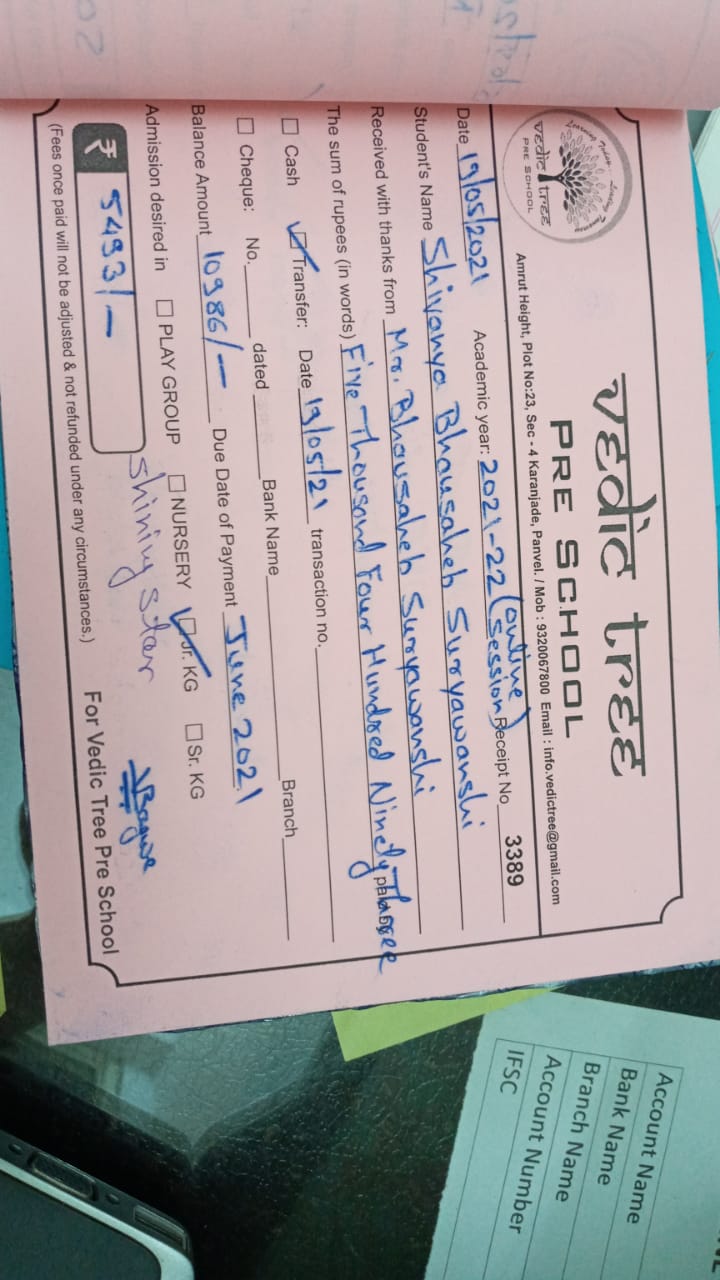 vedic tree
PRE SCHOOL
Learning Today.. Leading Tomorrow
vedic tree
PRE SCHOOL
Amrut Height, Plot No:23, Sec - 4 Karanjade, Panvel. / Mob : 9320067800 Email : info.vedictree@gmail.com
Date 19/05/2021 Academic year: 2021-22 (online session) Receipt No 3389
Student's Name Shivanya Bhausaheb Suryawanshi
Received with thanks from Mr. Bhausaheb Suryawanshi
The sum of rupees (in words) Five Thousand Four Hundred Ninety Three paid by
Cash Transfer: Date 19/05/21 transaction no.
Cheque: No. dated Bank Name Branch
Balance Amount 10986/- Due Date of Payment June 2021
Admission desired in PLAY GROUP NURSERY Jr. KG Sr. KG
Shining star
₹ 5493/-
For Vedic Tree Pre School
(Fees once paid will not be adjusted & not refunded under any circumstances.)
Account Name
Bank Name
Branch Name
Account Number
IFSC